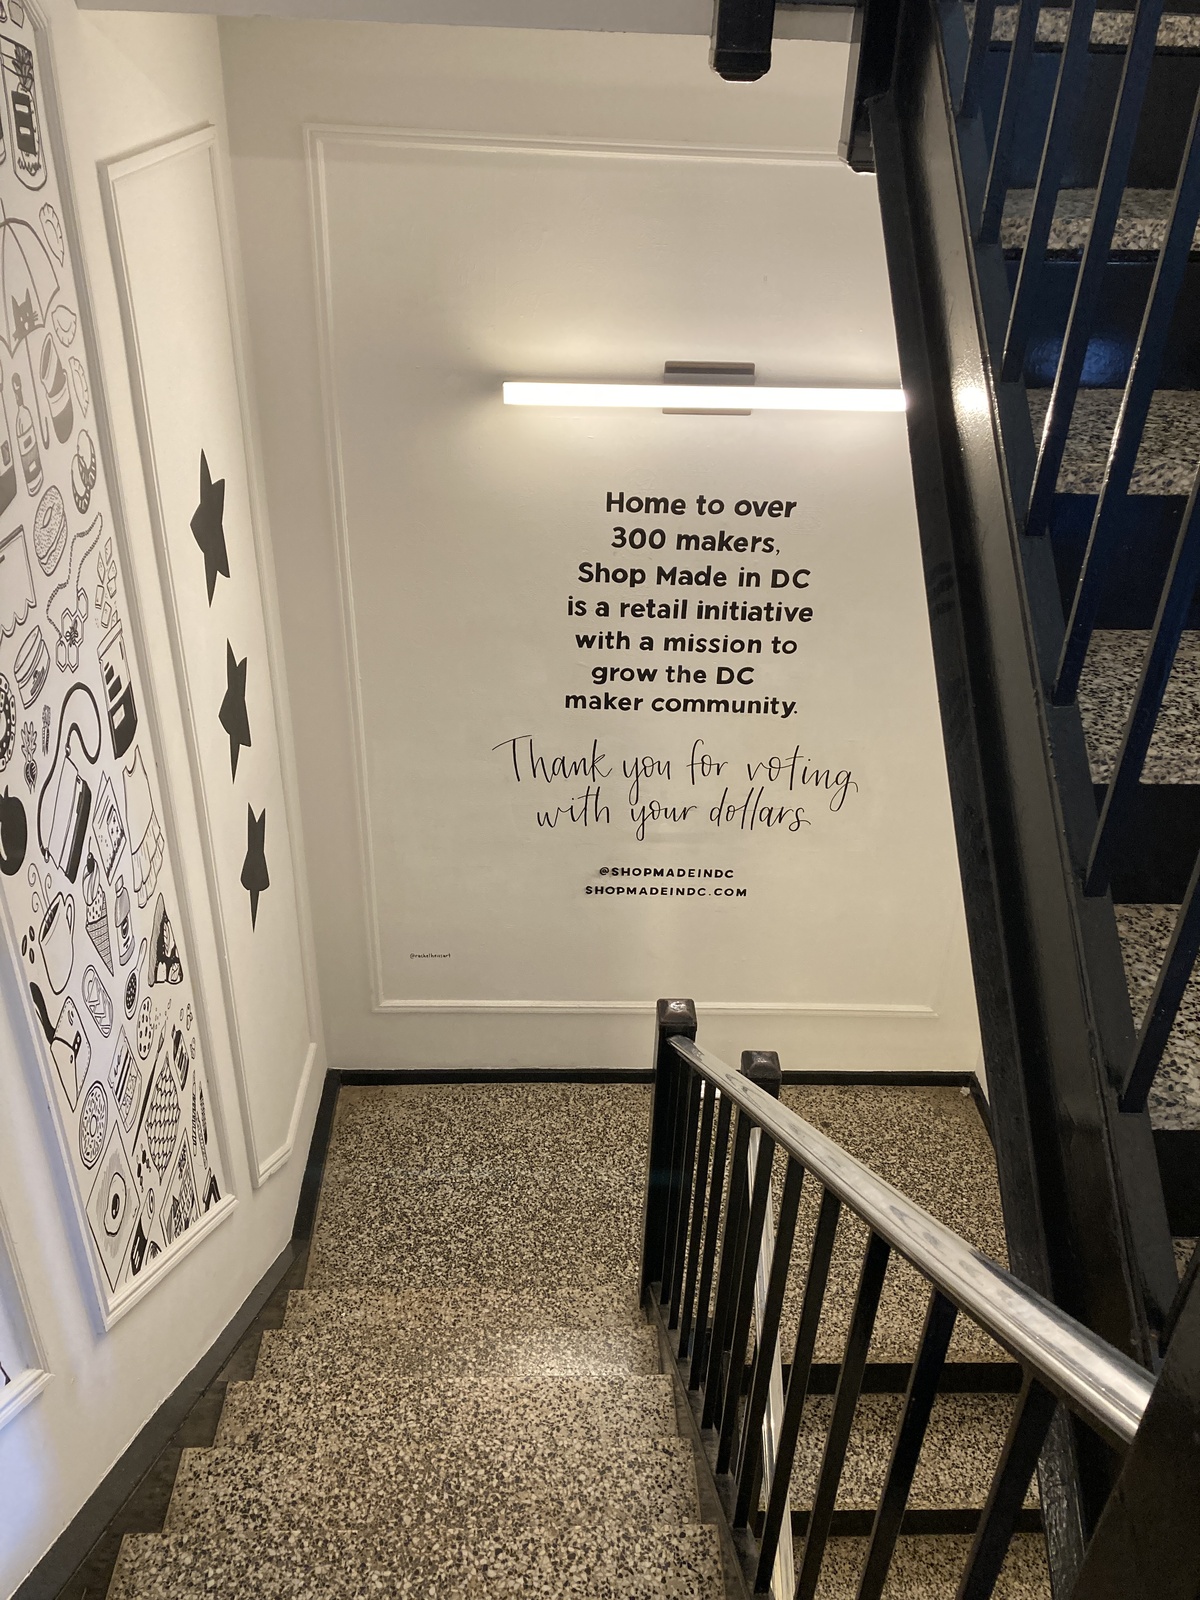 Home to over
300 makers,
Shop Made in DC
is a retail initiative
with a mission to
grow the DC
maker community.
Thank you for voting
with your dollars
@SHOPMADEINDC
SHOPMADEINDC.COM